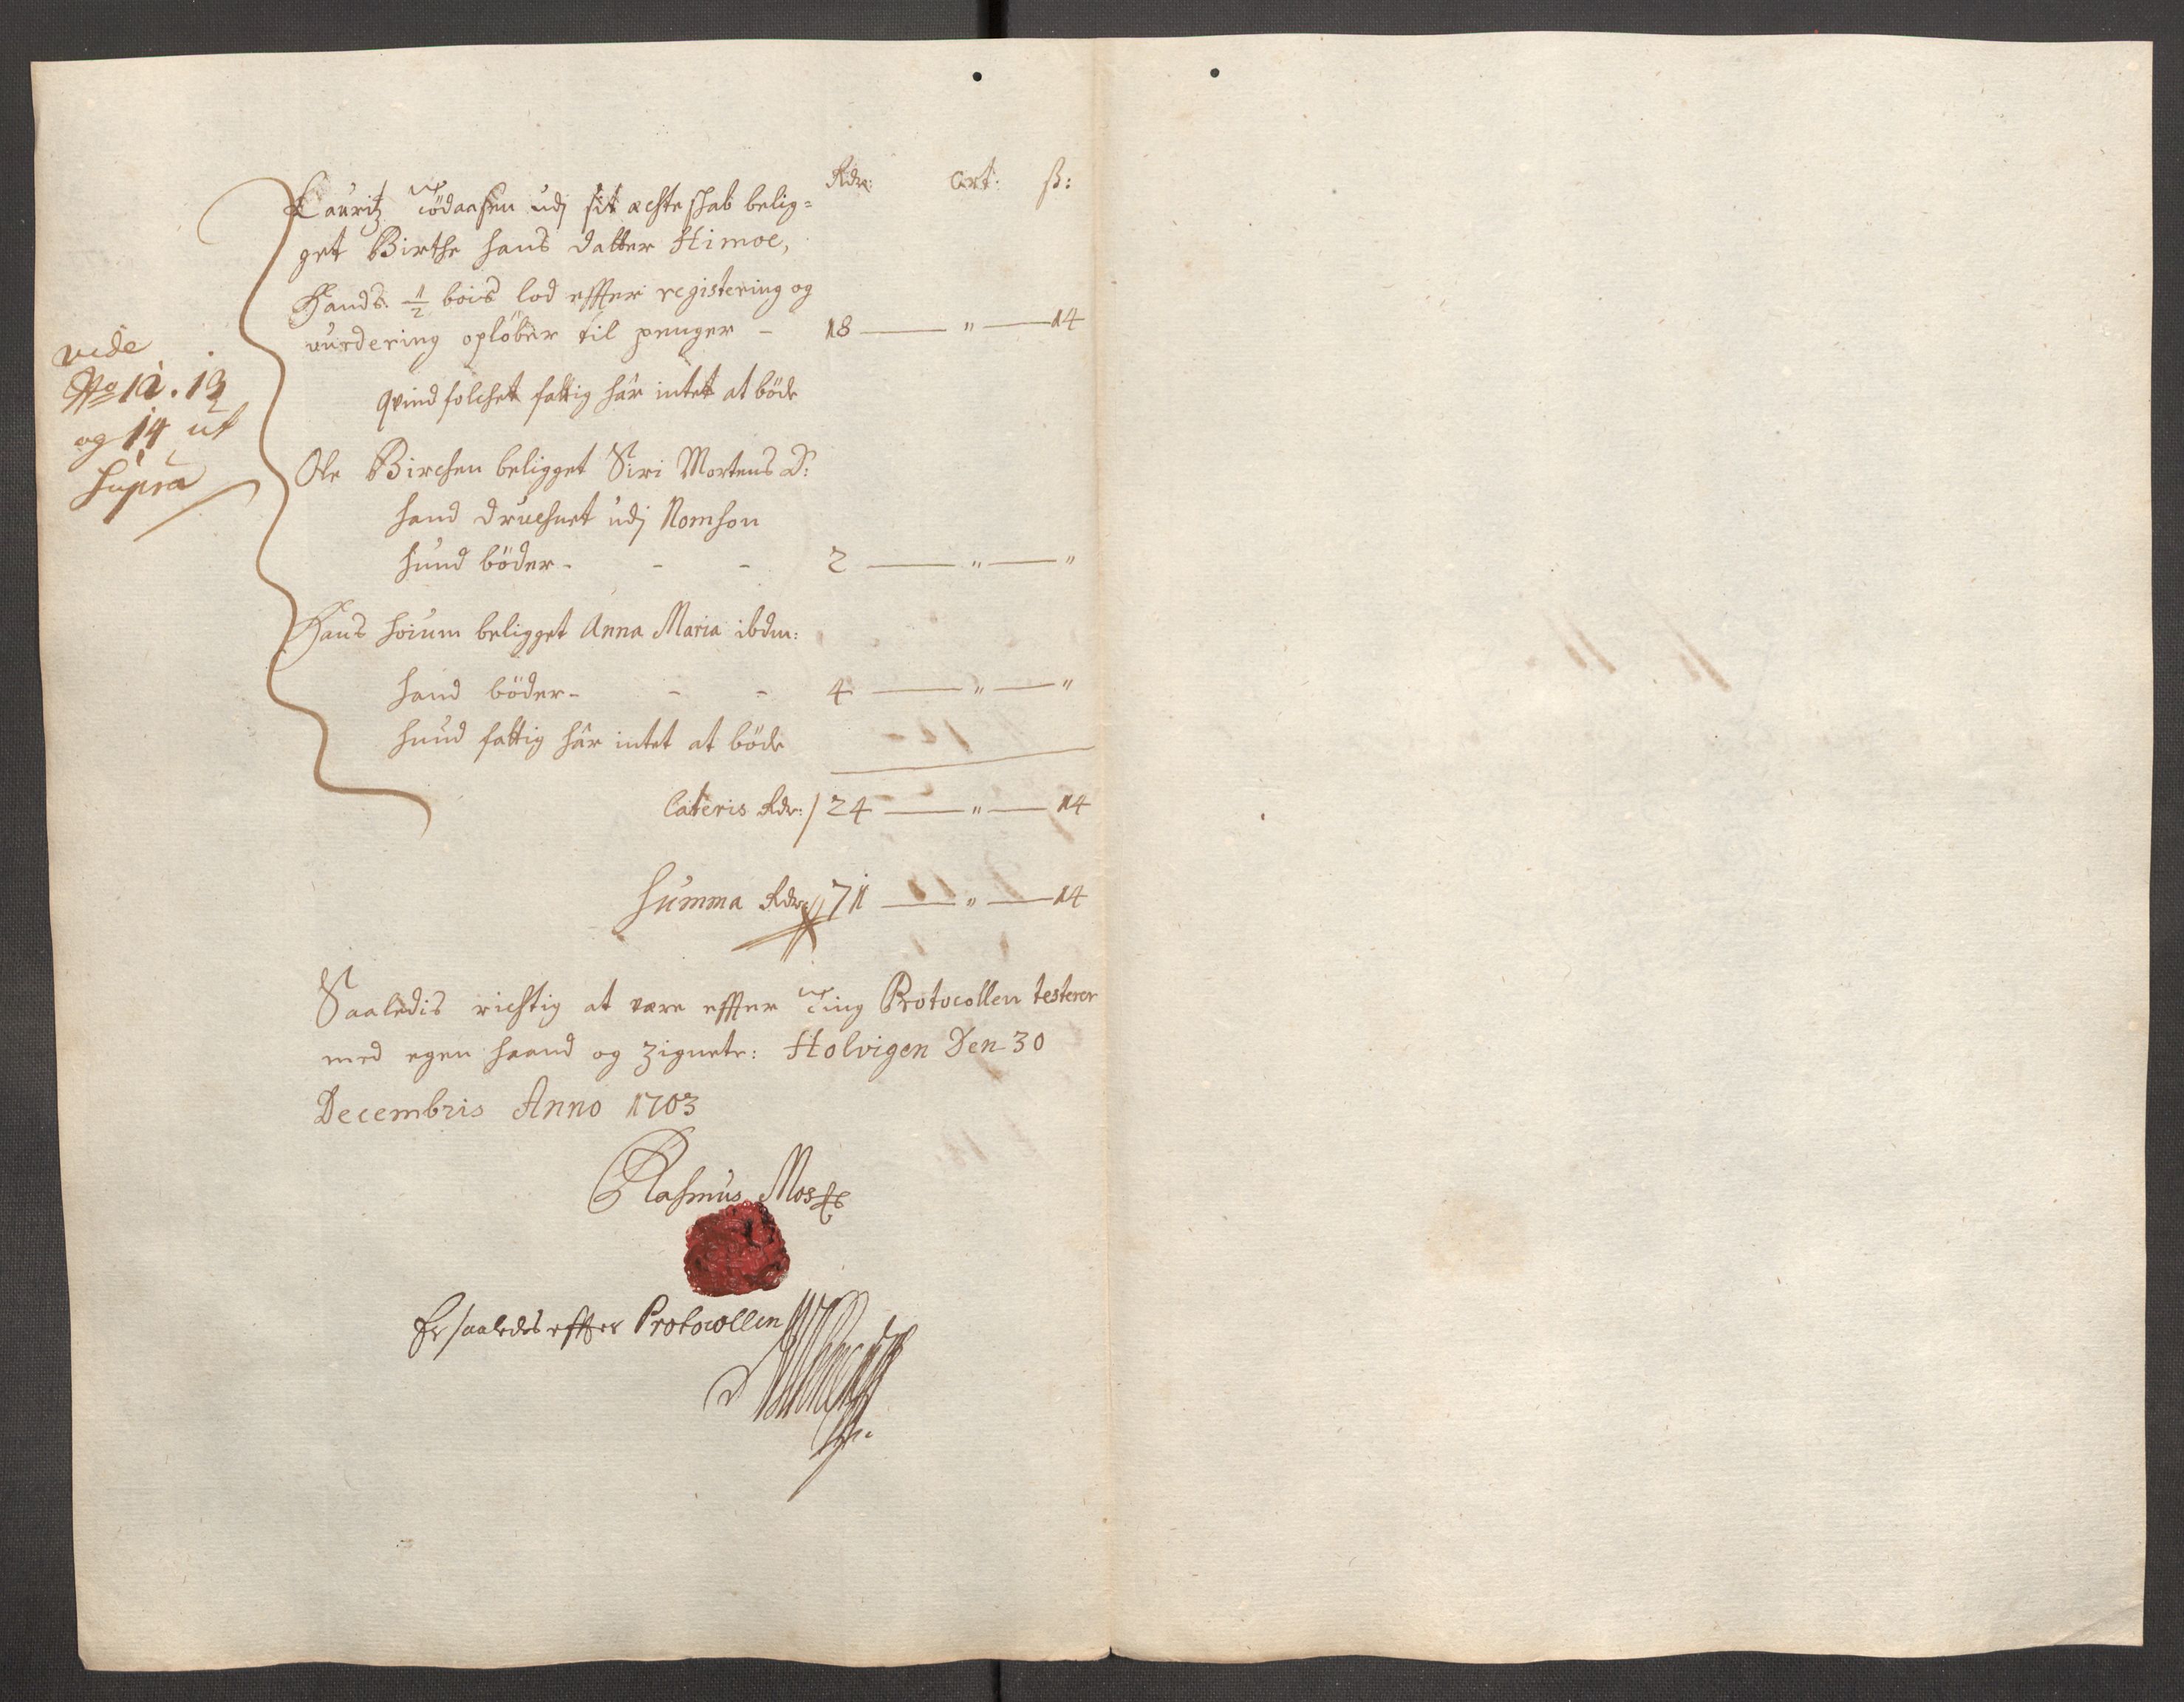 Rdr: ort: ß:
Lauritz Tödaasen udj sit ægteskab belig=
get Birthe Hans datter Himoe,
Hands 1/2 bois lod effter registering og
vurdering opløber til penger - 18 — " — 14
qvindfolchet fattig har intet at böde
vide
No 12. 13
og 14 ut
supra
Ole Birchen beligget Siri Mortens D:
hand druchnet udj Nomson
hund böder - - - 2 — " — "
Hans Hoium beligget Anna Maria ibdm:
hand böder - - - 4 — " — "
hund fattig har intet at böde
Lateris Rdr: / 24 — " — 14
Summa Rdr 71 — " — 14
Saaledis richtig at være effter Ting Protocollen testerer
med egen haand og Zignete: Holvigen Den 30
Decembris Anno 1703
Rasmus Moss
Er saaledes effter Protocollen